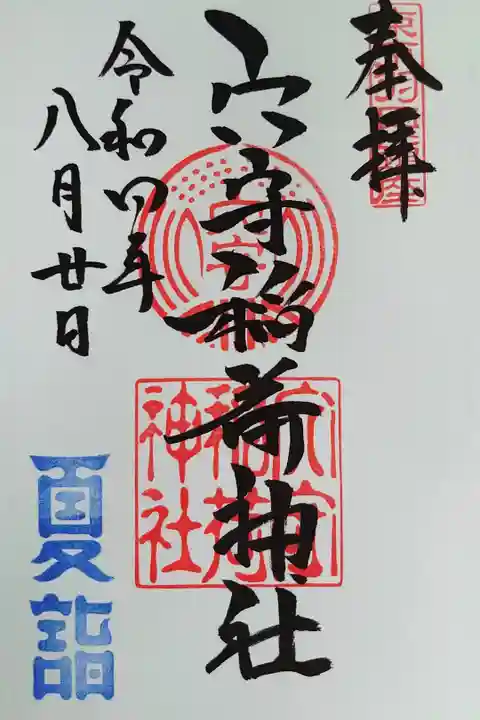 奉拝
穴守稲荷神社
穴守
稲荷
神社
令和四年
八月廿日
夏詣